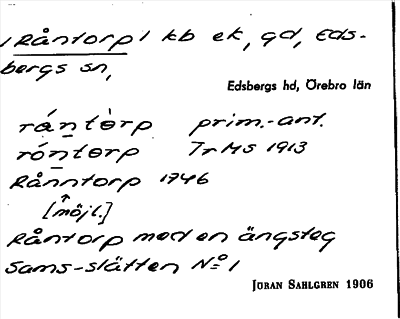 /Råntorp/ kb ek, gd, Eds-
bergs sn,
Edsbergs hd, Örebro län
rántòrp prim.-ant.
róntorp TrMS 1913
Rånntorp 1746
[möjl.]
Råntorp med en ängsteg
Sams-slätten No 1
JÖRAN SAHLGREN 1906